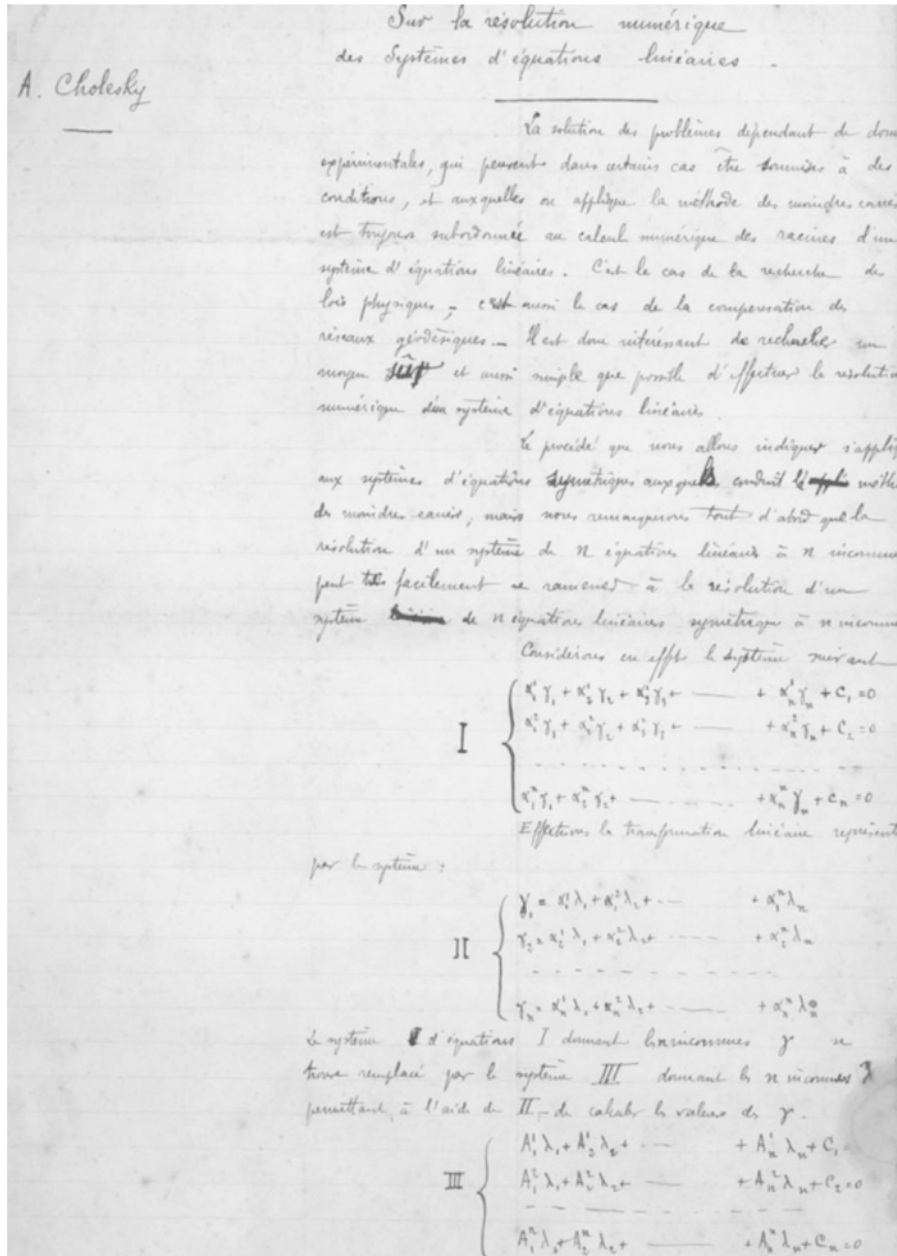 Sur la résolution numérique
des Systèmes d'équations linéaires.
A. Cholesky
La solution des problèmes dépendant de donn
expérimentales, qui peuvent dans certains cas être soumises à des
conditions, et auxquelles on applique la méthode des moindres carrés
est toujours subordonnée au calcul numérique des racines d'un
système d'équations linéaires. C'est le cas de la recherche des
lois physiques, c'est aussi le cas de la compensation des
réseaux géodésiques. Il est donc intéressant de rechercher un
moyen sûr et aussi simple que possible d'effectuer la résolution
numérique d'un système d'équations linéaires.
Le procédé que nous allons indiquer s'appliq
aux systèmes d'équations symétriques auxquels conduit la méth
des moindres carrés, mais nous remarquerons tout d'abord que la
résolution d'un système de n équations linéaires à n inconnue
peut très facilement se ramener à la résolution d'un
système de n équations linéaires symétrique à n inconnu
Considérons en effet le système suivant
I { α₁¹ γ₁ + α₂¹ γ₂ + α₃¹ γ₃ + —— + αₙ¹ γₙ + C₁ = 0
α₁² γ₁ + α₂² γ₂ + α₃² γ₃ + —— + αₙ² γₙ + C₂ = 0
- - - - - - - - - -
α₁ⁿ γ₁ + α₂ⁿ γ₂ + —— + αₙⁿ γₙ + Cₙ = 0
Effectuons la transformation linéaire représent
par le système :
II { γ₁ = α₁¹ λ₁ + α₁² λ₂ + ---- + α₁ⁿ λₙ
γ₂ = α₂¹ λ₁ + α₂² λ₂ + ---- + α₂ⁿ λₙ
- - - - - - - - - -
γₙ = αₙ¹ λ₁ + αₙ² λ₂ + ---- + αₙⁿ λₙ
Le système d'équations I donnant les inconnues γ se
trouve remplacé par le système III donnant les n inconnues λ
permettant, à l'aide de II, de calculer les valeurs des γ.
III { A₁¹ λ₁ + A₂¹ λ₂ + ---- + Aₙ¹ λₙ + C₁ =
A₁² λ₁ + A₂² λ₂ + ---- + Aₙ² λₙ + C₂ = 0
- - - - - - - - - -
A₁ⁿ λ₁ + A₂ⁿ λ₂ + —— + Aₙⁿ λₙ + Cₙ = 0